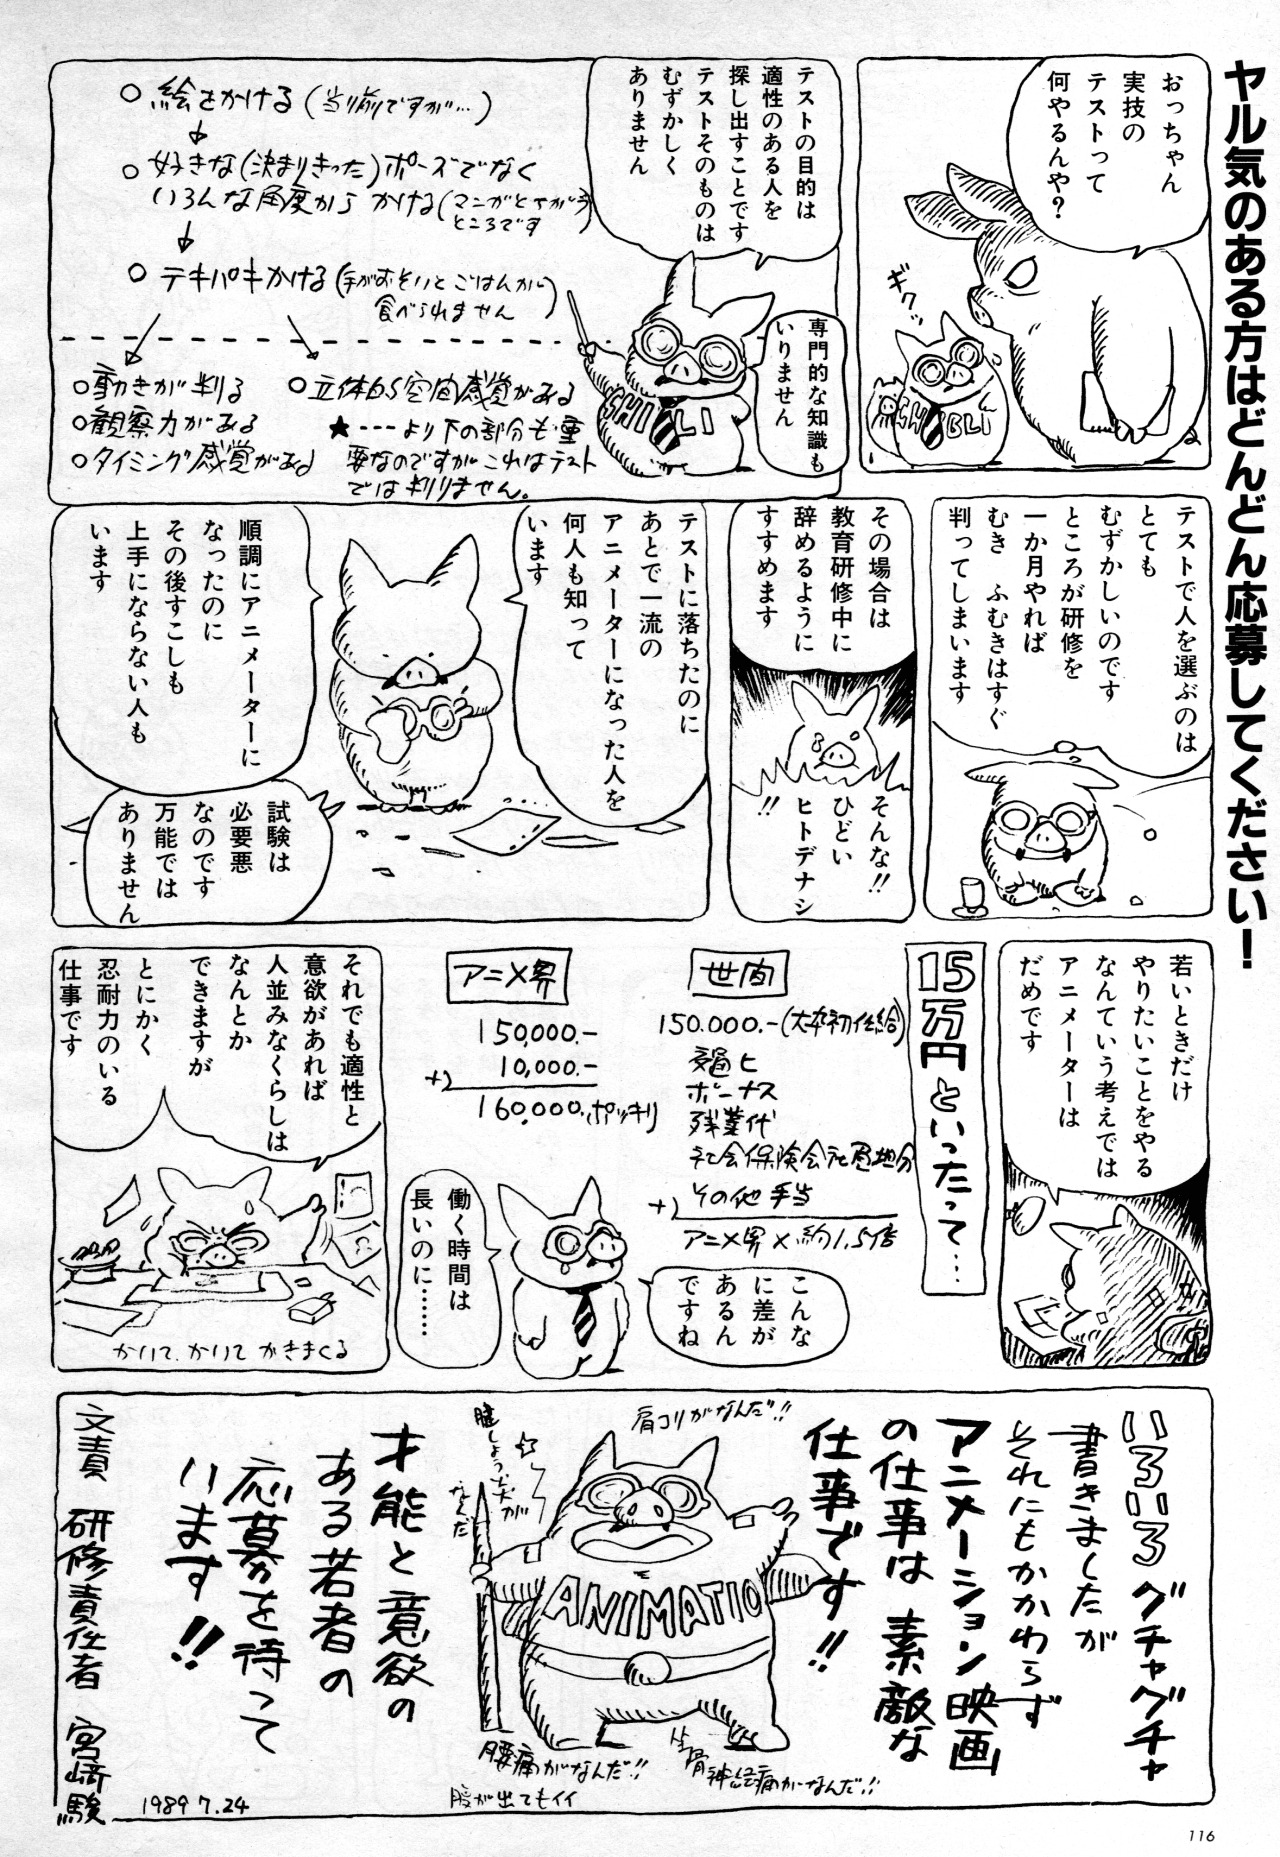 ヤル気のある方はどんどん応募してください!
おっちゃん
実技の
テストって
何やるんや?
ギクッ
GHIBLI
テストの目的は
適性のある人を
探し出すことです
テストそのものは
むずかしく
ありません
専門的な知識も
いりません
○絵をかける(当り前ですが…)
○好きな(決まりきった)ポーズでなく
いろんな角度から かける(マンガとちがう
ところです)
○テキパキかける(手がおそいとごはんが
食べられません)
○動きが判る
○観察力がある
○タイミング感覚がある
○立体的空間感覚がある
★---より下の部分も重
要なのですがこれはテスト
では判りません。
テストで人を選ぶのは
とても
むずかしいのです
ところが研修を
一か月やれば
むき ふむきはすぐ
判ってしまいます
その場合は
教育研修中に
辞めるように
すすめます
そんな!!
ひどい
ヒトデナシ
!!
テストに落ちたのに
あとで一流の
アニメーターになった人を
何人も知って
います
順調にアニメーターに
なったのに
その後すこしも
上手にならない人も
います
試験は
必要悪
なのです
万能では
ありません
若いときだけ
やりたいことをやる
なんていう考えでは
アニメーターは
だめです
15万円といったって…
世間
150.000.-(大卒初任給)
交通ヒ
ボーナス
残業代
社会保険会社負担分
+)その他手当
アニメ界×約1.5倍
アニメ界
150,000.-
+) 10,000.-
160,000.ポッキリ
こんな
に差が
あるん
ですね
働く時間は
長いのに……
それでも適性と
意欲があれば
人並みなくらしは
なんとか
できますが
とにかく
忍耐力のいる
仕事です
かいて、かいて かきまくる
いろいろグチャグチャ
書きましたが
それにもかかわらず
アニメーション映画
の仕事は素敵な
仕事です!!
肩コリがなんだ!!
腱しょう炎が
なんだ
ANIMATIO
腰痛がなんだ!!
坐骨神経痛がなんだ!!
腹が出てもイイ
才能と意欲の
ある若者の
応募を待って
います!!
文責 研修責任者 宮崎駿
1989 7.24
116